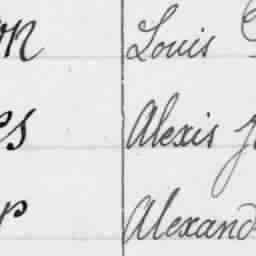 on Louis
es Alexis
p Alexand